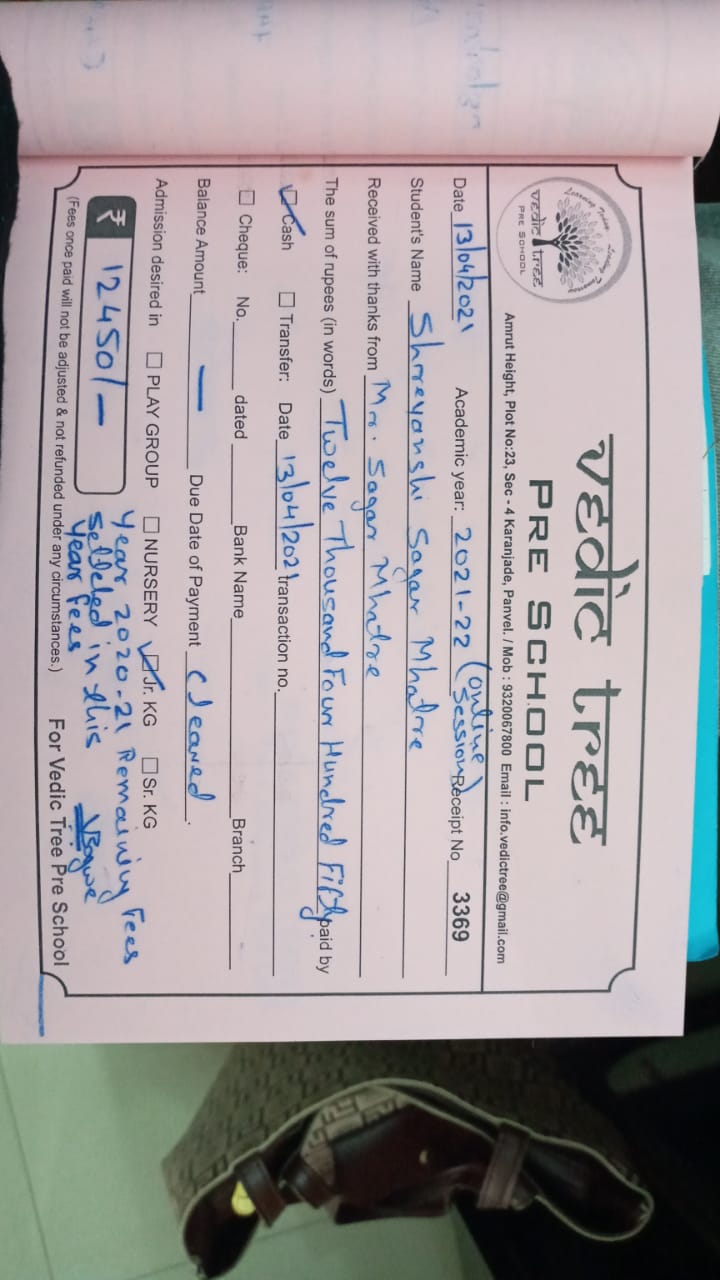 Learning Today Leading Tomorrow
vedic tree
PRE SCHOOL
vedic tree
PRE SCHOOL
Amrut Height, Plot No:23, Sec - 4 Karanjade, Panvel. / Mob : 9320067800 Email : info.vedictree@gmail.com
Date 13/04/2021 Academic year: 2021-22 (online Session) Receipt No 3369
Student's Name Shreyanshi Sagar Mhatre
Received with thanks from Mr. Sagar Mhatre
The sum of rupees (in words) Twelve Thousand Four Hundred Fifty paid by
☑ Cash ☐ Transfer: Date 13/04/2021 transaction no.
☐ Cheque: No. dated Bank Name Branch
Balance Amount — Due Date of Payment Cleared.
Admission desired in ☐ PLAY GROUP ☐ NURSERY ☑ Jr. KG ☐ Sr. KG
₹ 12450/-
Year 2020-21 Remaining Fees
Setteled in this
Year fees
(Fees once paid will not be adjusted & not refunded under any circumstances.) For Vedic Tree Pre School